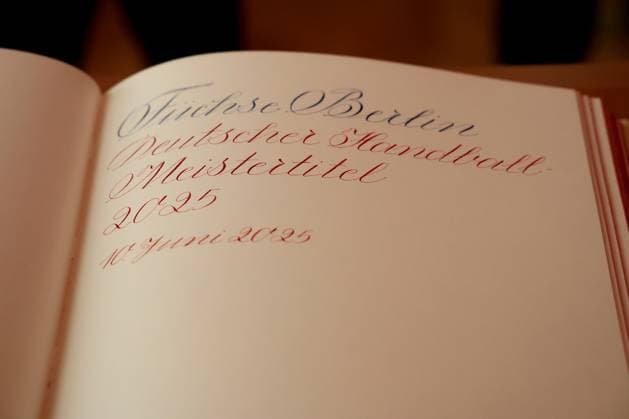 Füchse Berlin
Deutscher Handball-
Meistertitel
2025
10. Juni 2025